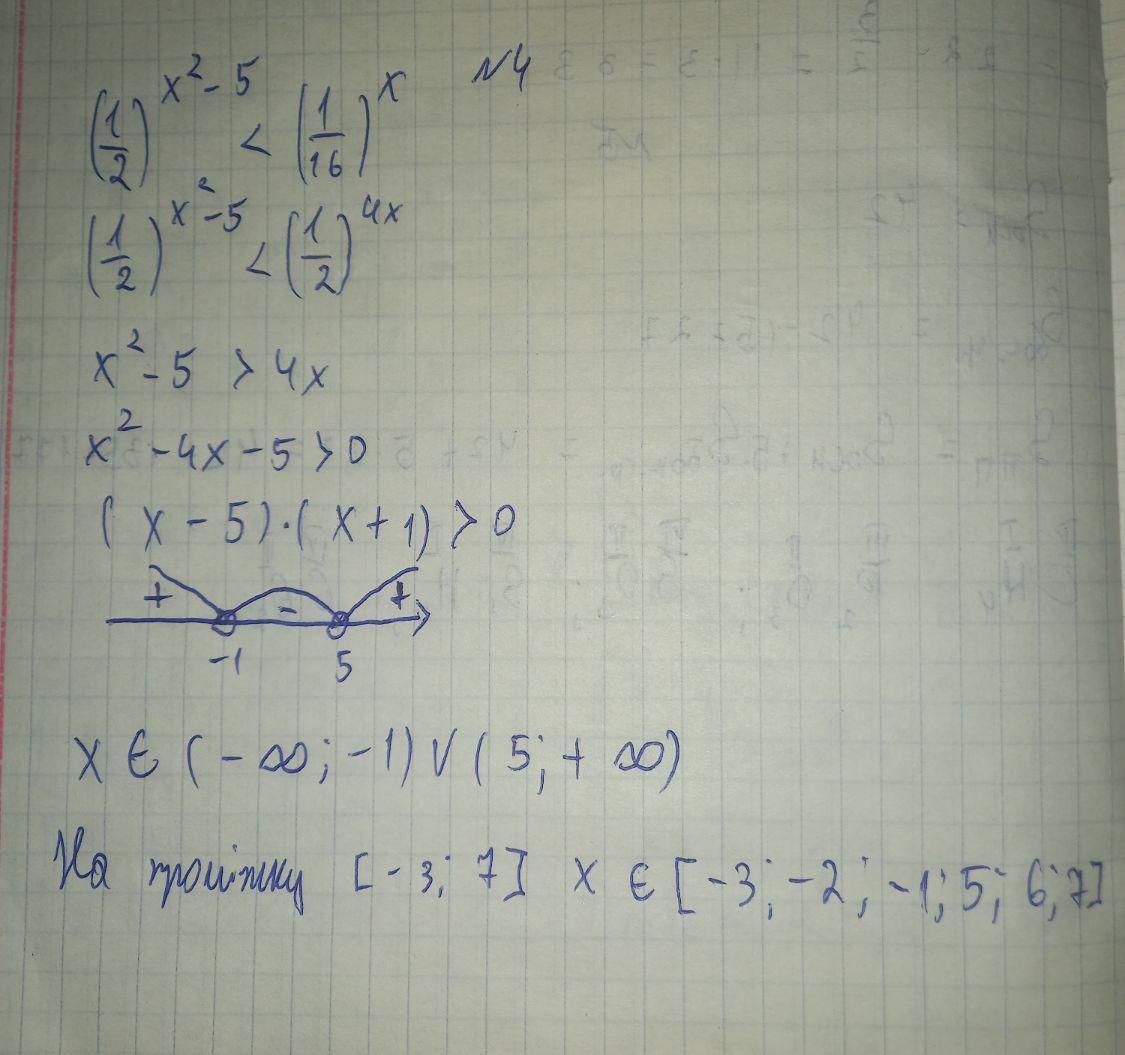 N4
(1/2)^(x²-5) < (1/16)^x
(1/2)^(x²-5) < (1/2)^(4x)
x² - 5 > 4x
x² - 4x - 5 > 0
(x - 5)·(x + 1) > 0
+ - +
-1 5
X ∈ (-∞; -1) ∪ (5; +∞)
На проміжку [-3; 7] X ∈ [-3; -2; -1; 5; 6; 7]